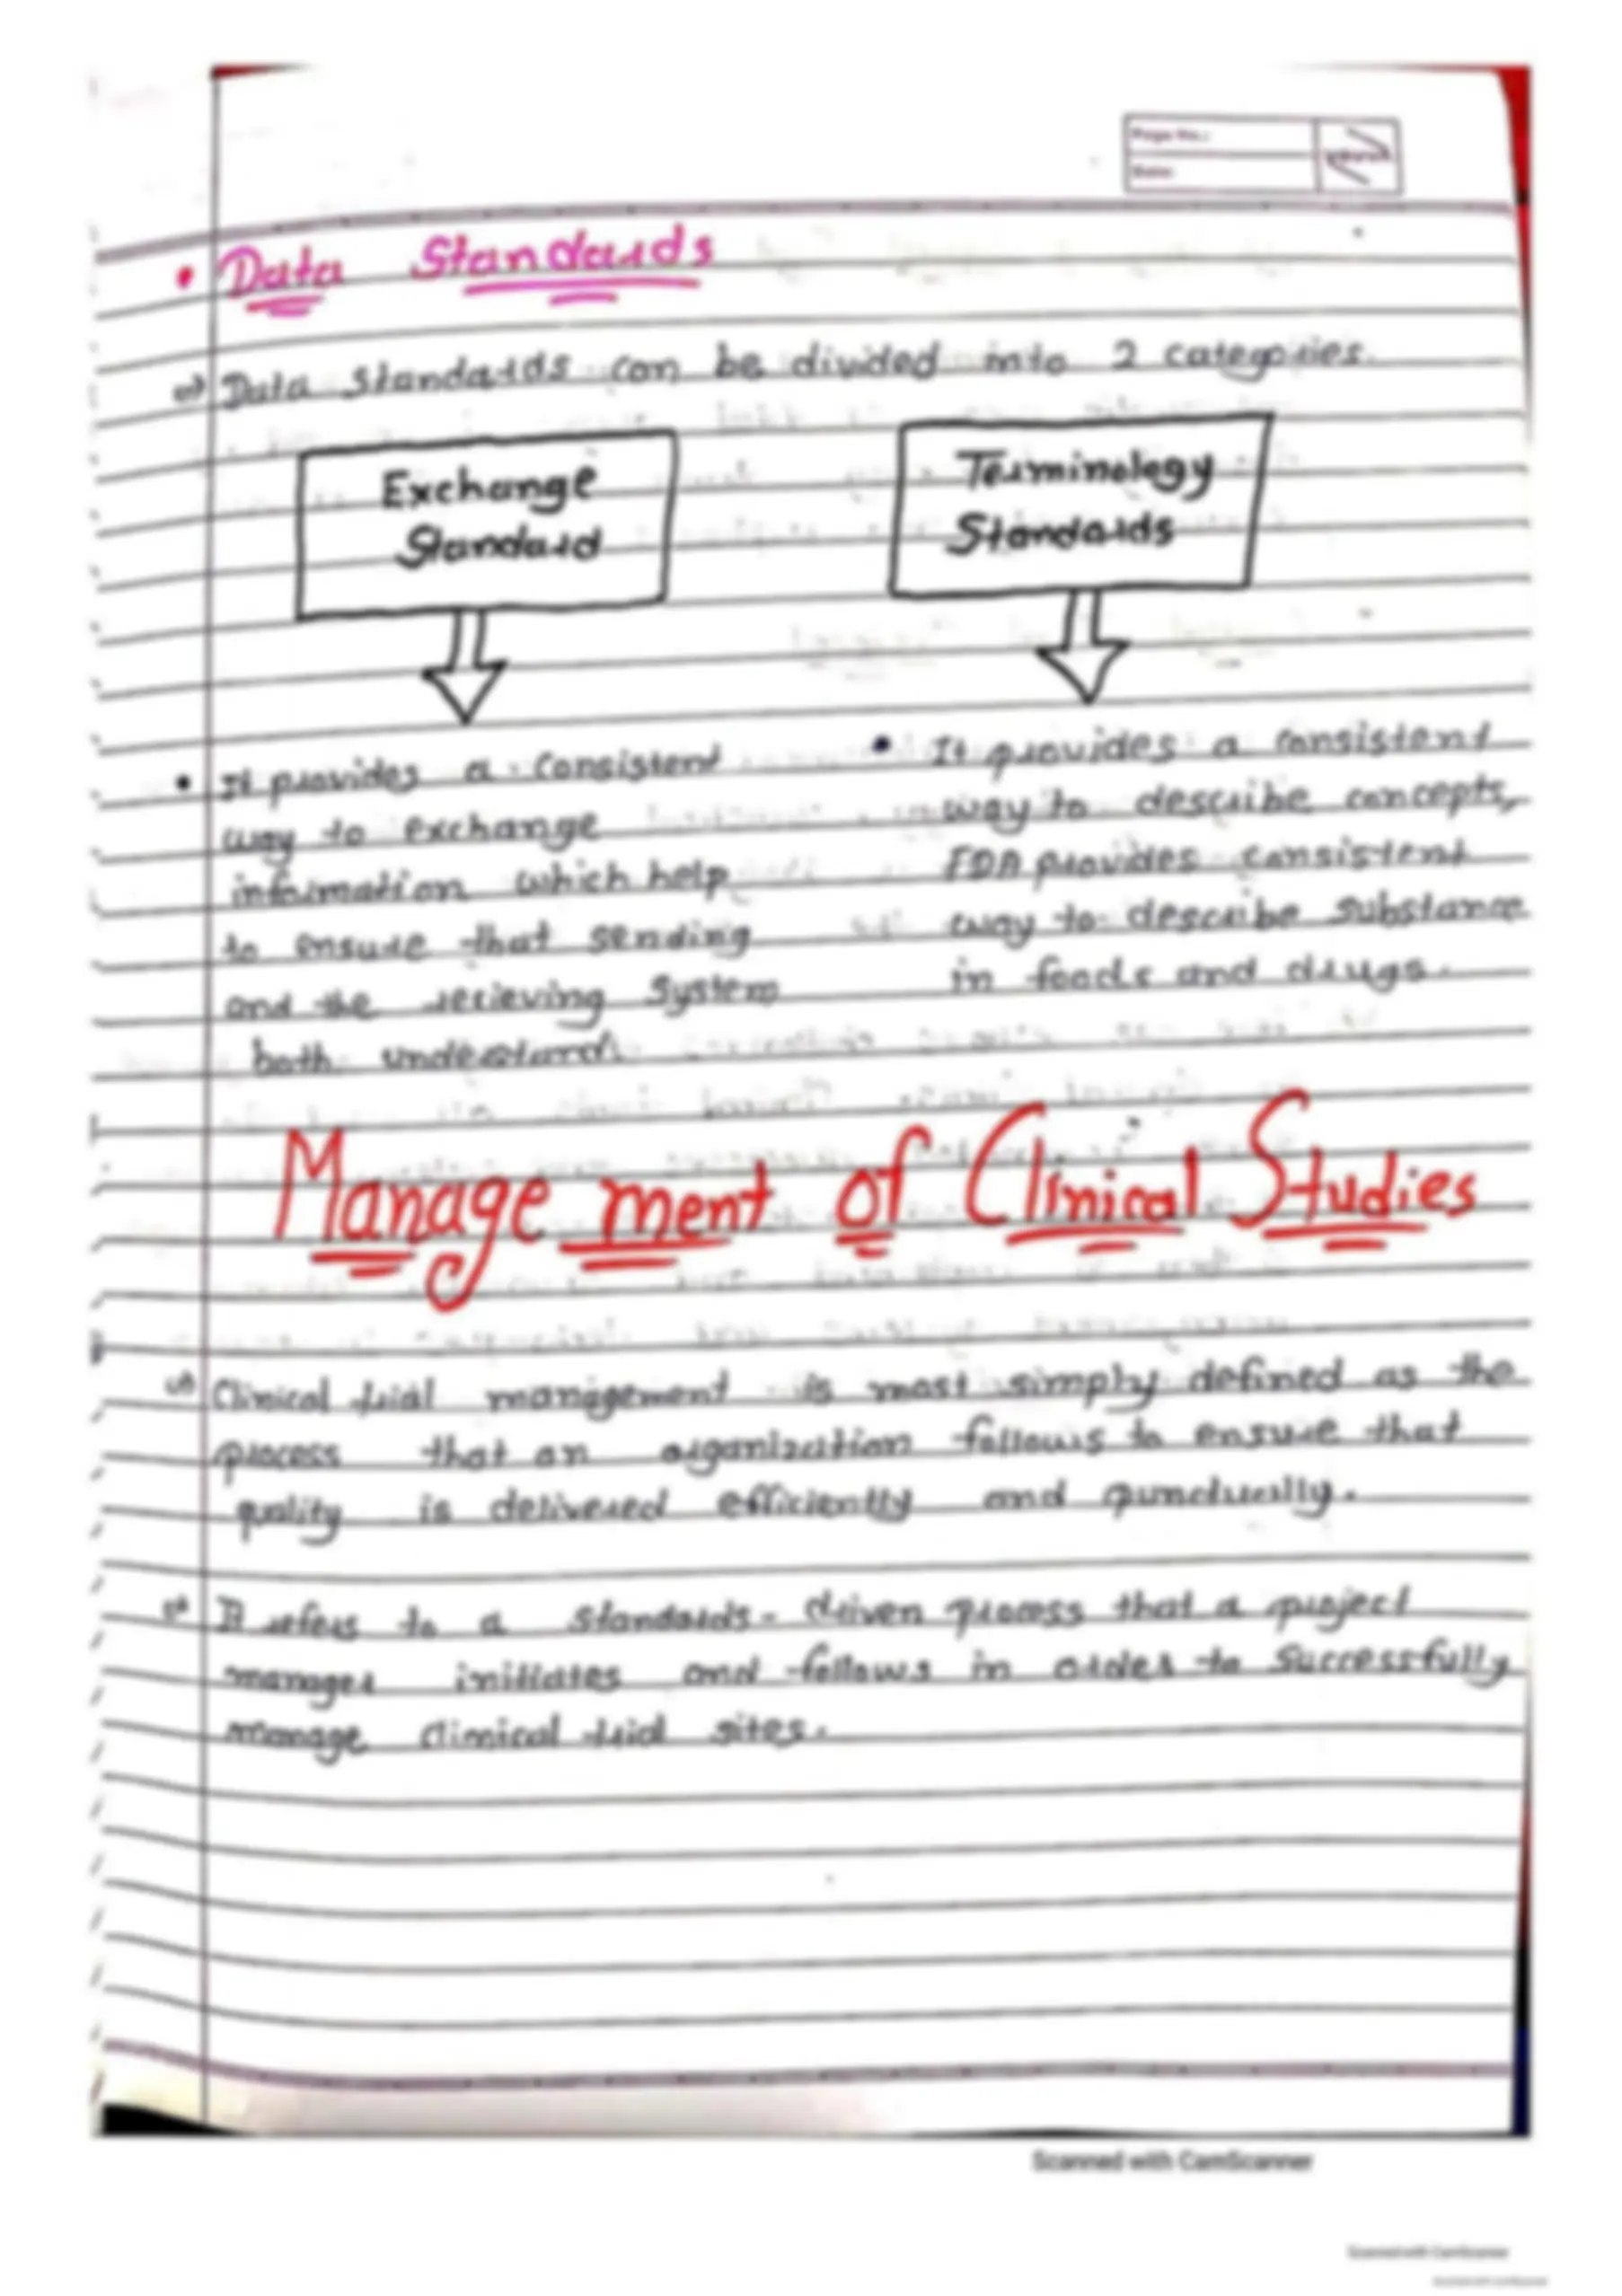 Page No.:
Date:
• Data Standards
⇒ Data standards can be divided into 2 categories.
Exchange
Standard
Terminology
Standards
• It provides a consistent
way to exchange
information which help
to ensure that sending
and the recieving system
both understand.
• It provides a consistent
way to describe concepts,
FDA provides consistent
way to describe substance
in foods and drugs.
Management of Clinical Studies
⇒ Clinical trial management is most simply defined as the
process that an organization follows to ensure that
quality is delivered efficiently and punctually.
⇒ It refers to a standards-driven process that a project
manager initiates and follows in order to successfully
manage clinical trial sites.
Scanned with CamScanner
Scanned with CamScanner
Scanned with CamScanner